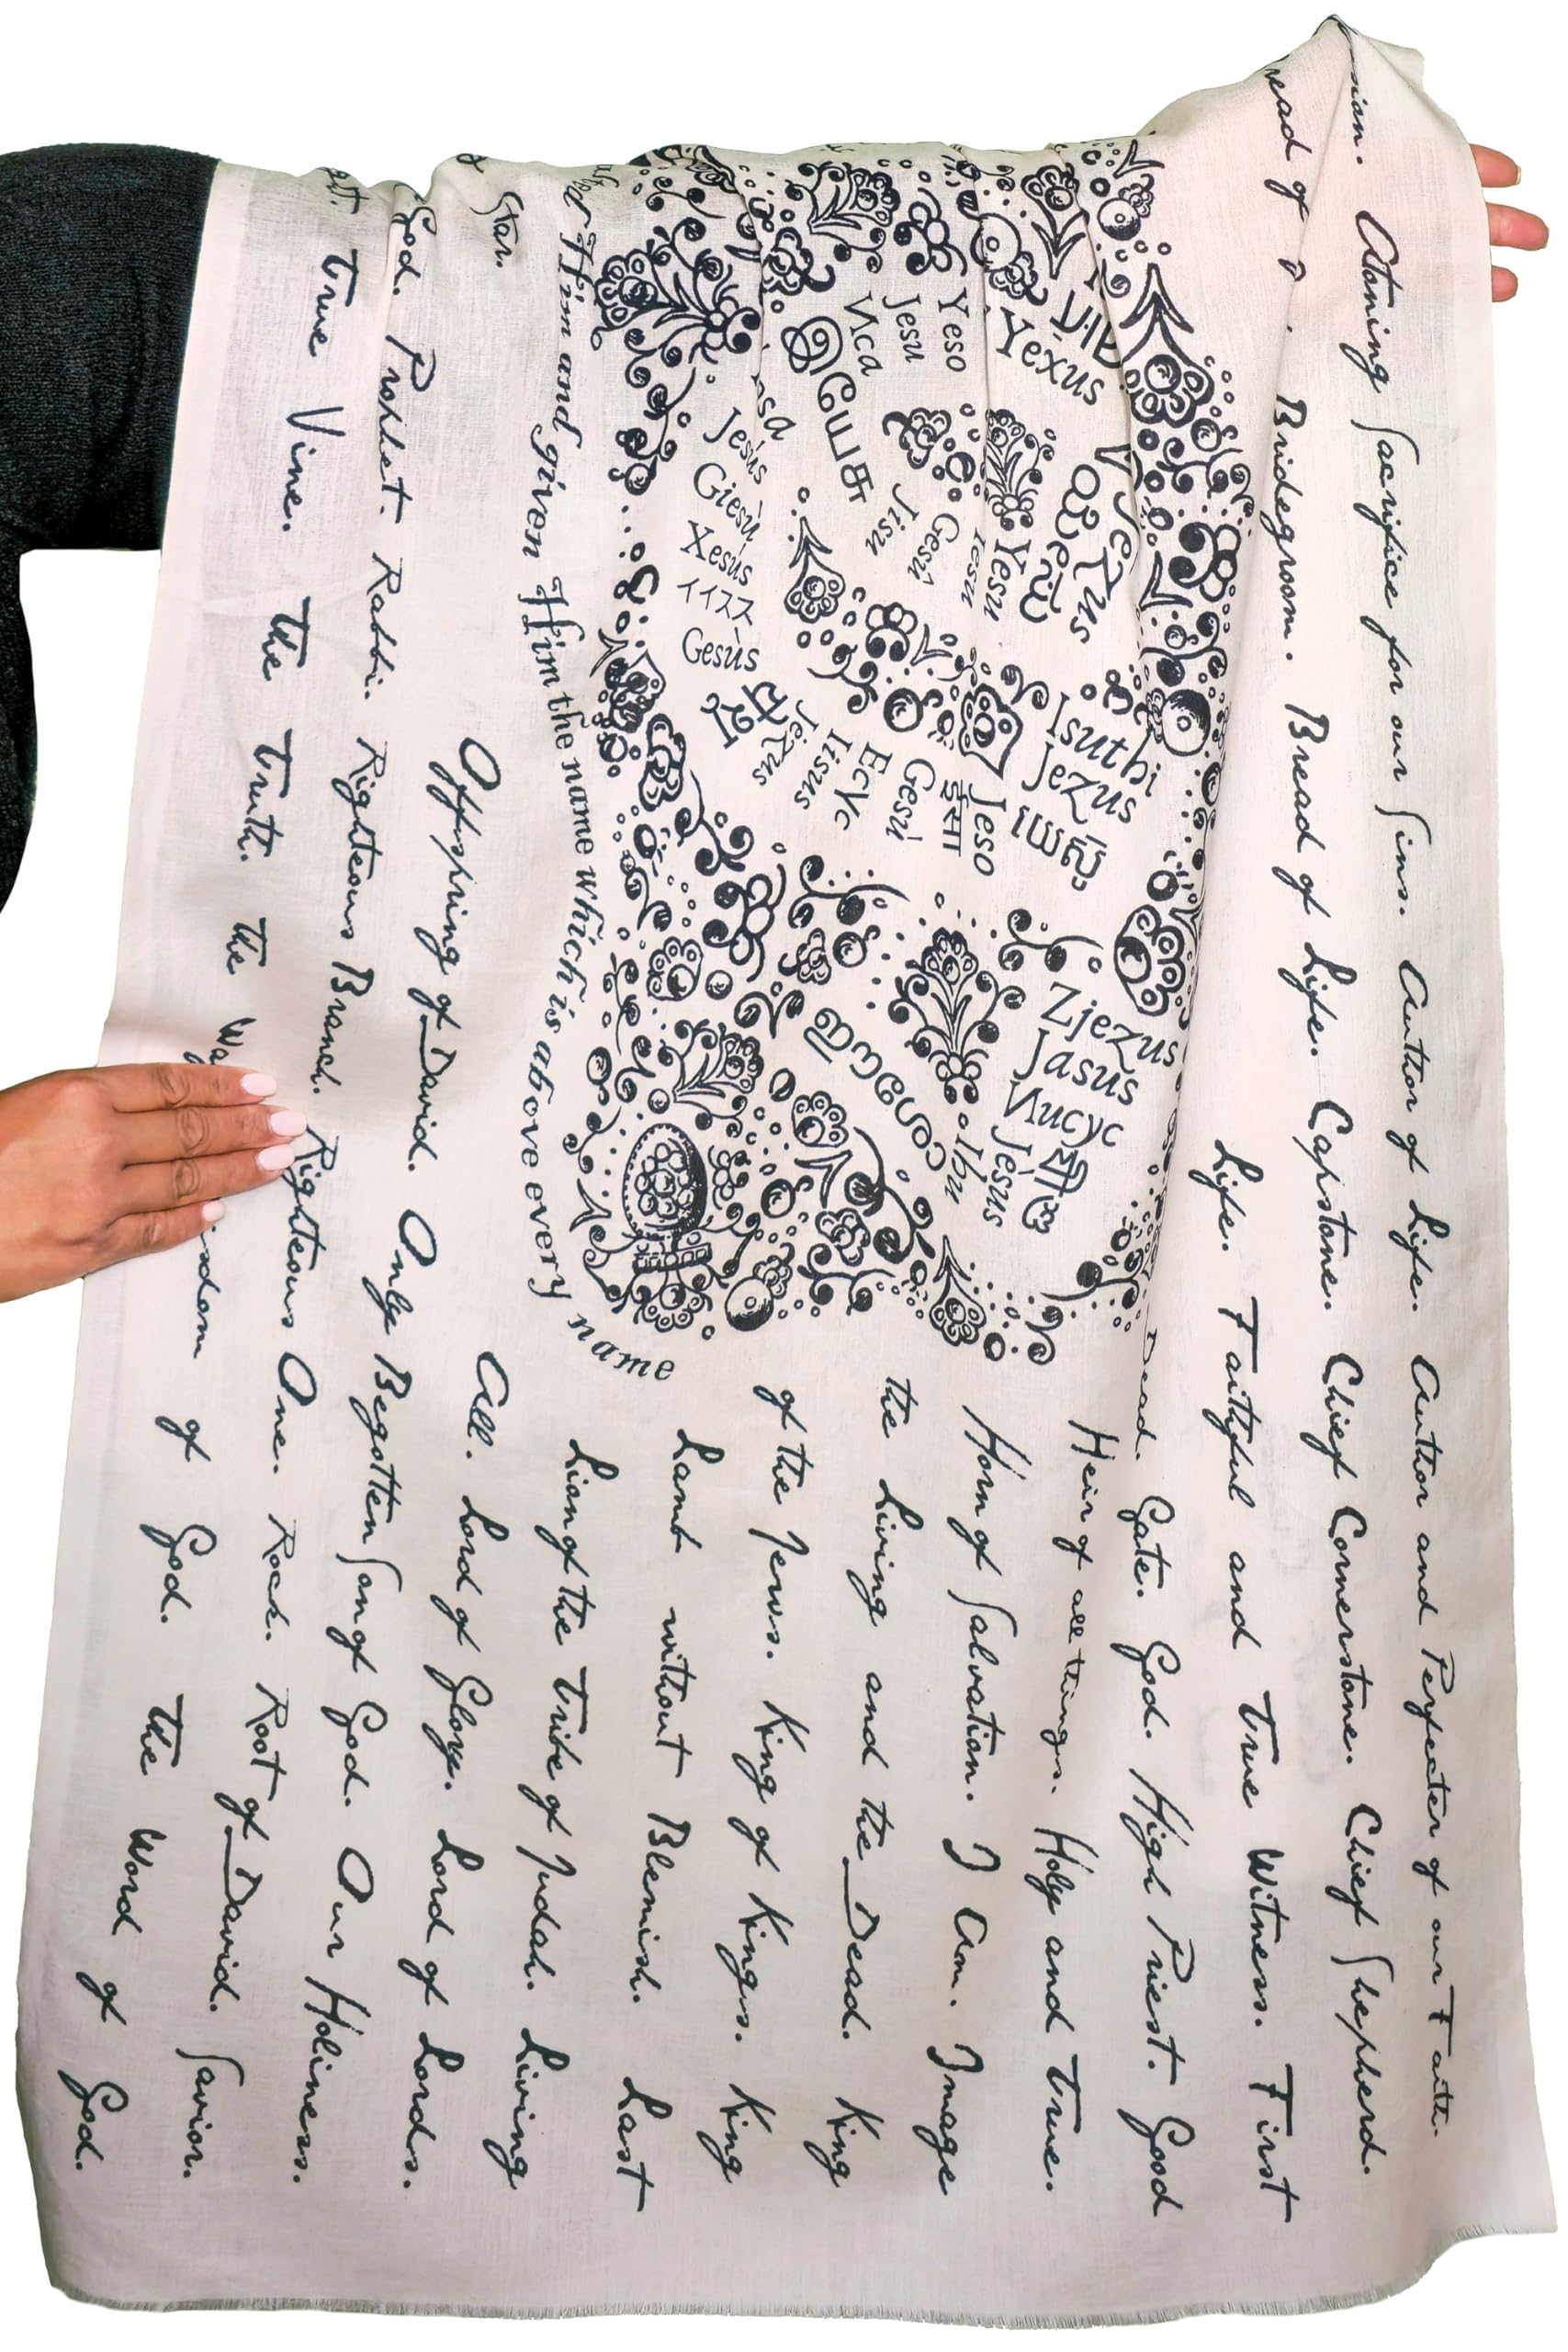 Atoning Sacrifice for our Sins. Author of Life. Author and Perfecter of our Faith.
of Bridegroom. Bread of Life. Capstone. Chief Cornerstone. Chief Shepherd.
Life. Faithful and True Witness. First
Dead. Gate. God. High Priest. Good
Heir of all things. Holy and True.
Horn of Salvation. I Am. Image
the Living and the Dead. King
of the Jews. King of Kings. King
Lamb without Blemish. Last
Lion of the Tribe of Judah. Living
Star. All. Lord of Glory. Lord of Lords.
Offspring of David. Only Begotten Son of God. Our Holiness.
God. Prophet. Rabbi. Righteous Branch. Righteous One. Rock. Root of David. Savior.
True Vine. The Truth. The Way. of God. The Word of God.
Yexus
Yeso
Jesu
Иса
இயேசு
Jezus
Yesu
Gesù
Jisu
Jesús
Giesù
Xesús
イイスス
Gesùs
예수
Jezus
Iisus
Gesù
ईसा
Jeso
Isuthi
Jezus
Zjezus
Jasus
Исус
Jésus
Him and given Him the name which is above every name